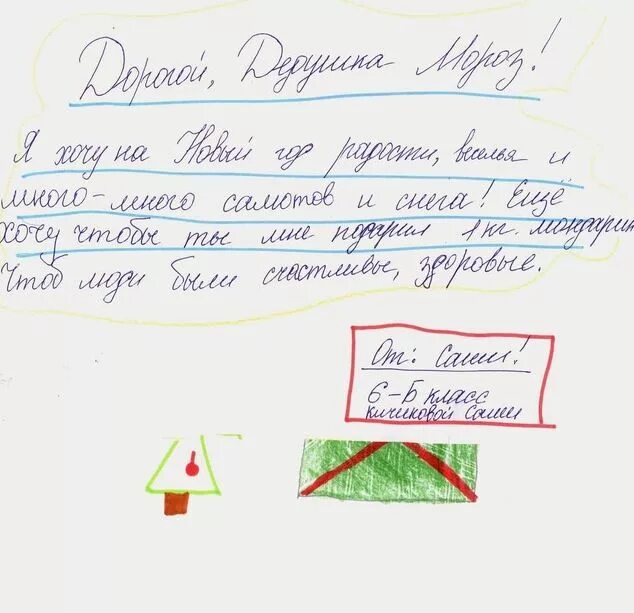 Дорогой, Дедушка Мороз!
Я хочу на Новый год радости, вселья и
много-много самотов и снега! Ещё
хочу чтобы ты мне подарил 1 кг. мондарин
Чтоб люди были счастливые, здоровые.
От: Саши!
6-Б класс
Кичиковой Саши